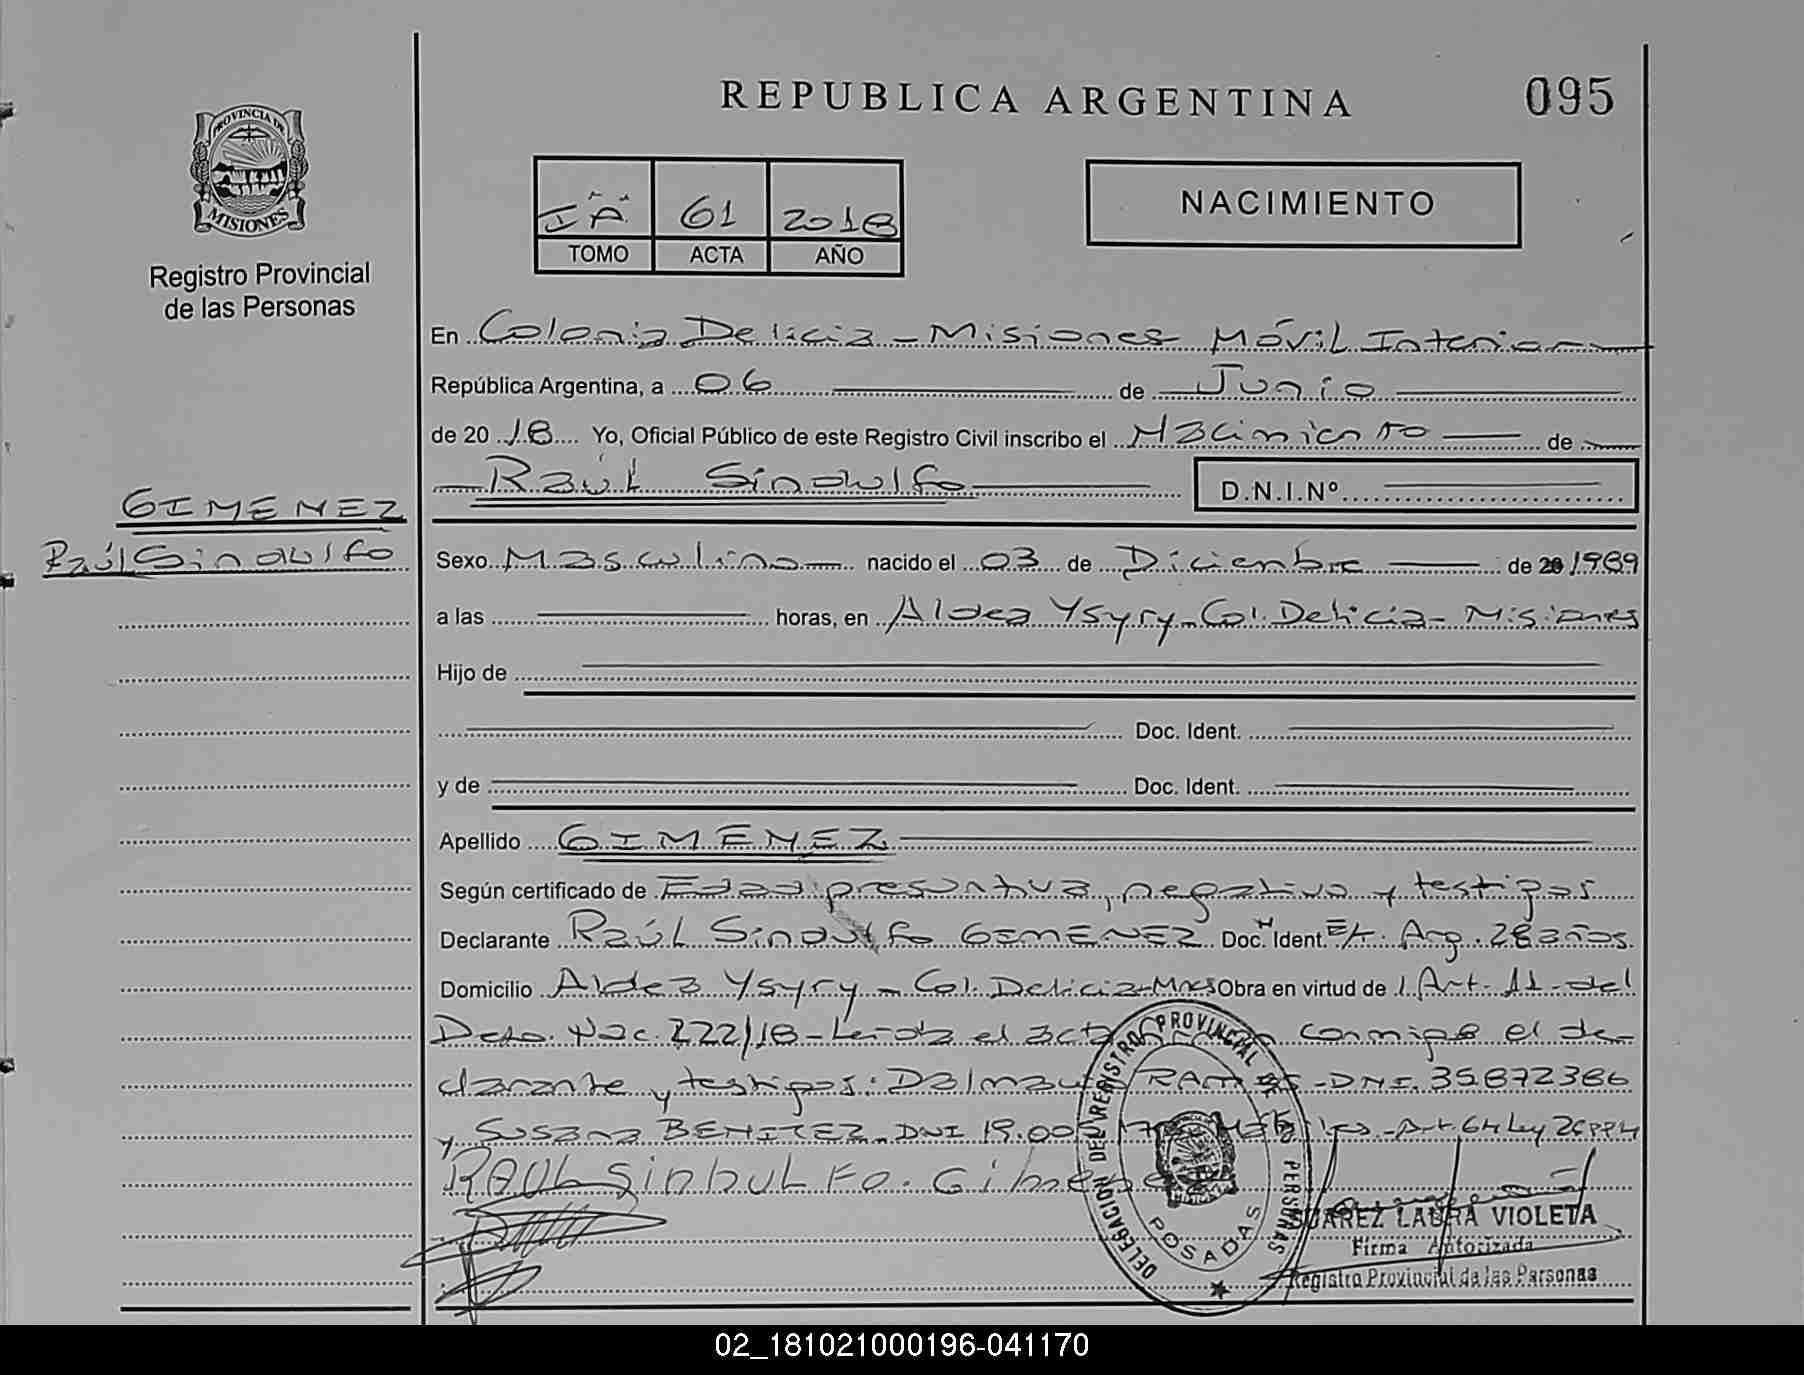 REPUBLICA ARGENTINA
095
PROVINCIA DE
MISIONES
Registro Provincial
de las Personas
I "A" 61 2018
TOMO ACTA AÑO
NACIMIENTO
En Colonia Delicia - Misiones Móvil Interior
República Argentina, a 06 de Junio
de 2018 Yo, Oficial Público de este Registro Civil inscribo el Nacimiento de
Raúl Sindulfo D.N.I.Nº
GIMENEZ
Raúl Sindulfo
Sexo Masculino nacido el 03 de Diciembre de 20 1989
a las horas, en Aldea Ysyry - Col. Delicia - Misiones
Hijo de
Doc. Ident.
y de Doc. Ident.
Apellido GIMÉNEZ
Según certificado de Edad presuntiva, negativo y testigos
Declarante Raúl Sindulfo GIMENEZ Doc. Ident. Arg. 28 años.
Domicilio Aldea Ysyry - Col. Delicia - Mnes Obra en virtud de l Art. 11 - del
Deto. Nac. 222/18 - Leída el acta conmigo el de-
clarante y testigos: RAMOS - DNI. 35872386
y Susana BENITEZ DNI 19.00 - Art 64 Ley 26994
RAUL SINDULFO. Gimenez
DELEGACION DEL REGISTRO PROVINCIAL DE PERSONAS
POSADAS
SUAREZ LAURA VIOLETA
Firma Autorizada
Registro Provincial de las Personas
02_181021000196-041170